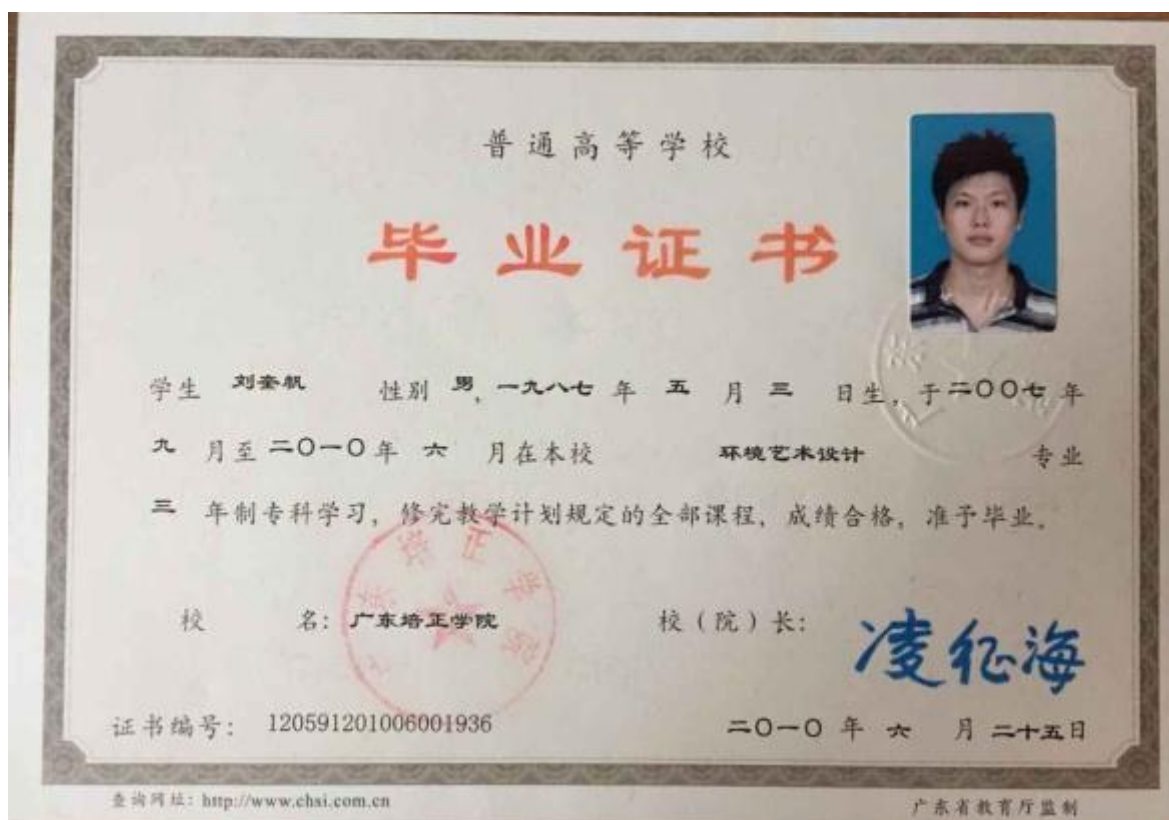 普通高等学校
毕业证书
学生 刘奎帆 性别 男，一九八七年 五 月 三 日生，于二〇〇七年
九 月至二〇一〇年 六 月在本校 环境艺术设计 专业
三 年制专科学习，修完教学计划规定的全部课程，成绩合格，准予毕业。
广东培正学院
校 名：广东培正学院 校（院）长：凌征海
证书编号：120591201006001936 二〇一〇年 六 月二十五日
查询网址：http://www.chsi.com.cn 广东省教育厅监制